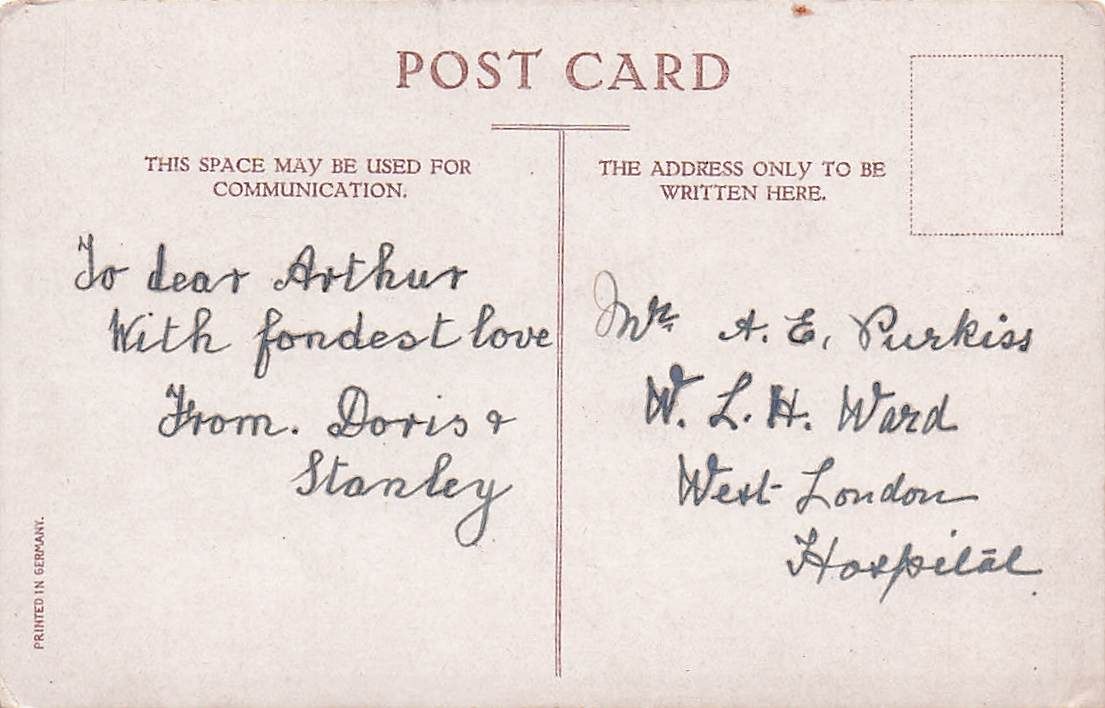 POST CARD
THIS SPACE MAY BE USED FOR
COMMUNICATION.
To dear Arthur
With fondest love
From. Doris &
Stanley
THE ADDRESS ONLY TO BE
WRITTEN HERE.
Mr A. E. Purkiss
W. L. H. Ward
West London
Hospital.
PRINTED IN GERMANY.